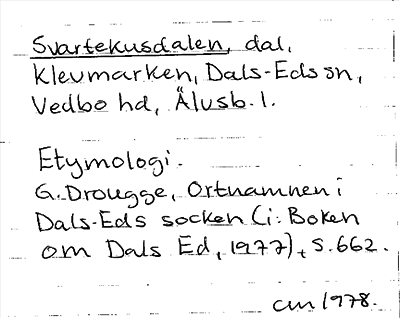 Svartekusdalen, dal,
Klevmarken, Dals-Eds sn,
Vedbo hd, Älvsb. l.
Etymologi.
G. Drougge, Ortnamnen i
Dals-Eds socken (i: Boken
om Dals Ed, 1977), s. 662.
cm 1978.